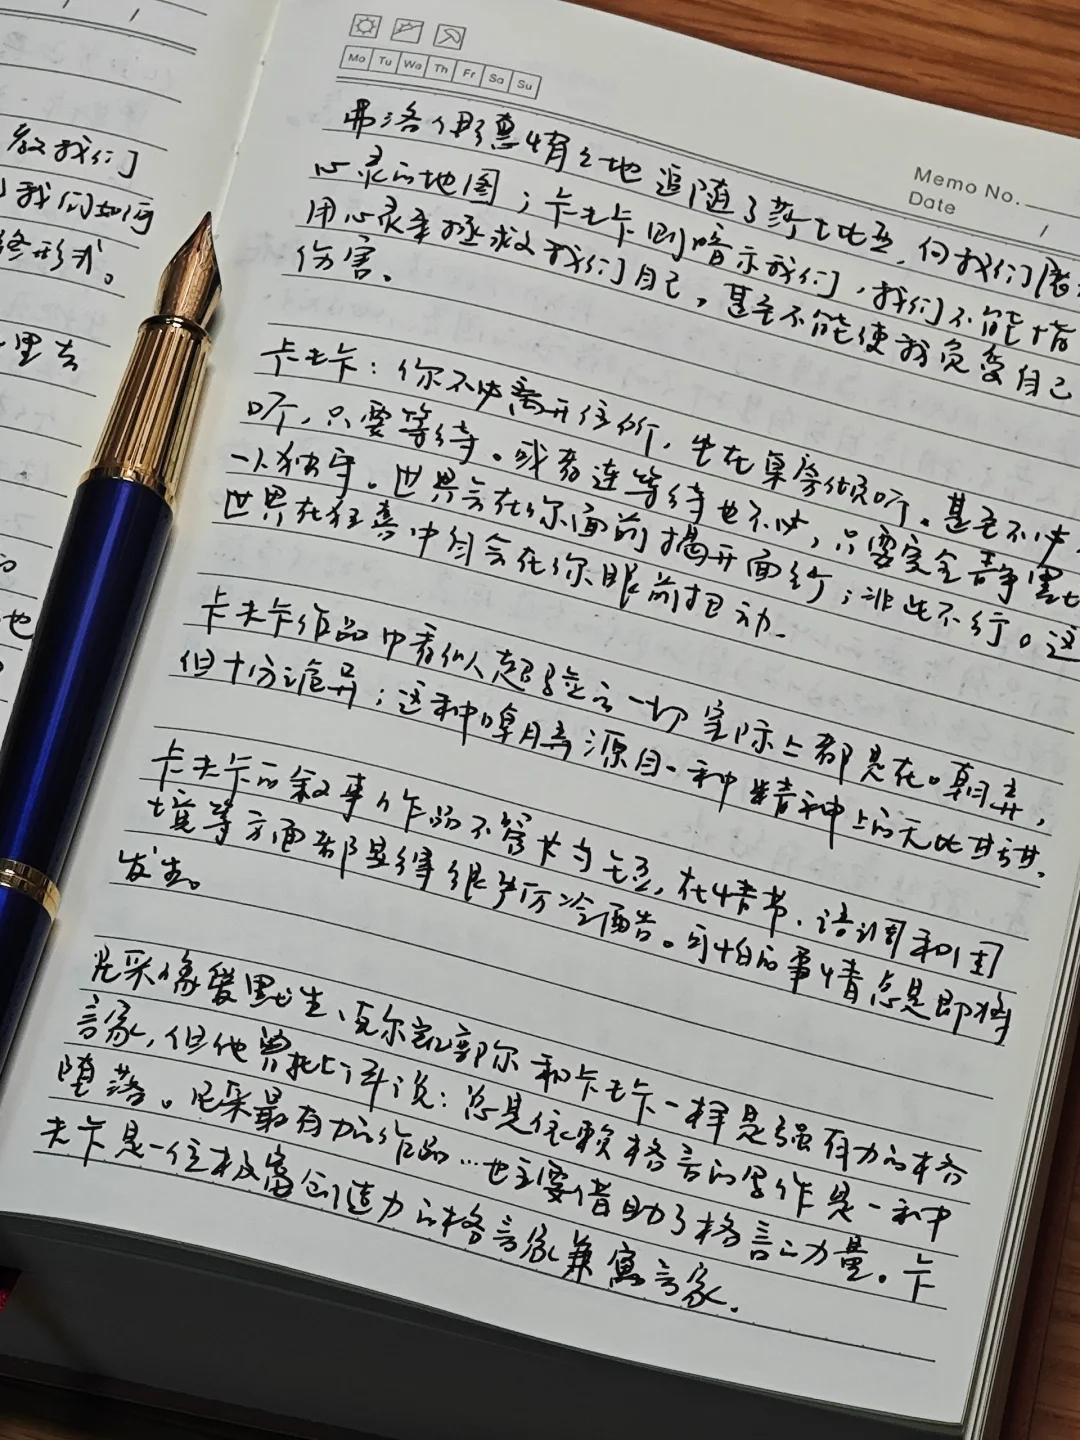 教我们
我们如何
终形式。
里去
也
Mo Tu We Th Fr Sa Su
Memo No.
Date
弗洛伊德情之地追随了莎士比亚，向我们展
心灵的地图；卡夫卡则暗示我们，我们不能指
用心灵来拯救我们自己，甚至不能使我免受自己
伤害。
卡夫卡：你不必离开住所，坐在桌旁倾听。甚至不必
听，只要等待。或者连等待也不必，只要完全静默
一人独守。世界会在你面前揭开面纱；非此不行。这
世界在狂喜中则会在你眼前扭动.
卡夫卡作品中看似人超验之一切实际上都是在嘲弄，
但十分诡异；这种嘲弄源自一种精神上的无比甘甜.
卡夫卡的叙事作品不管长与短，在情节、语调和困
境等方面都显得很严厉冷酷。可怕的事情总是即将
发生。
尼采像爱默生、克尔凯郭尔和卡夫卡一样是强有力的格
言家，但他曾批评说：总是依赖格言的写作是一种
堕落。尼采最有力的作品…也主要借助了格言的力量。卡
夫卡是一位极富创造力的格言家兼寓言家.